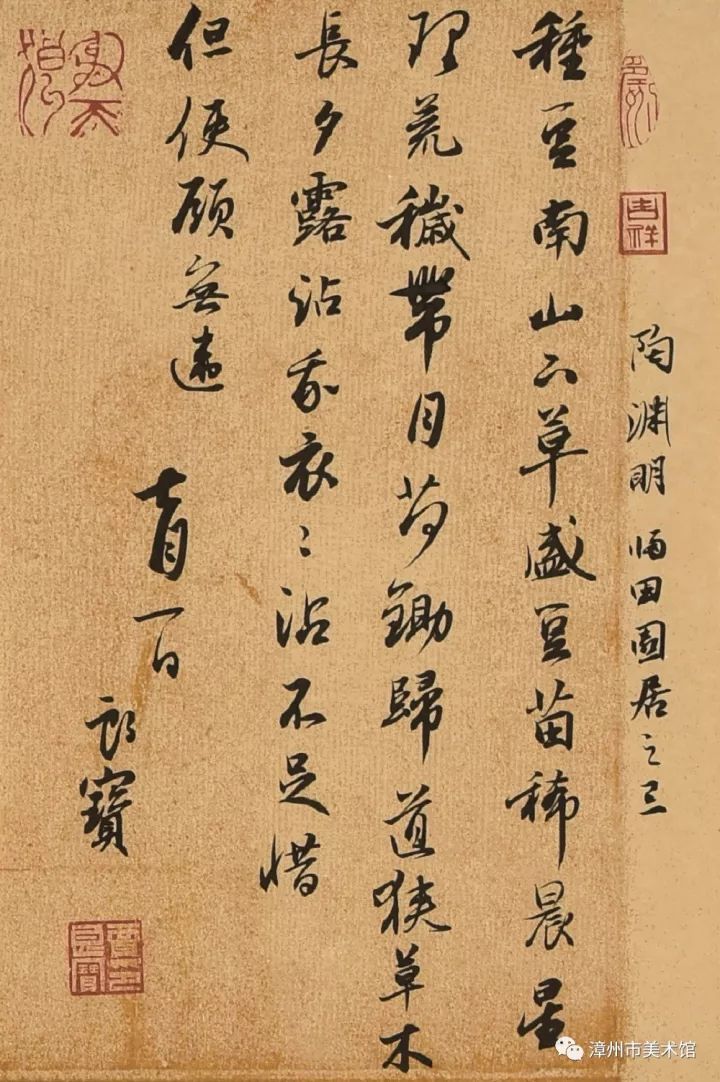 陶渊明 歸田園居之三
種豆南山下草盛豆苗稀晨星
理荒穢帶月荷鋤歸道狹草木
長夕露沾我衣〻沾不足惜
但使願無違
月一日
寶
吉祥
漳州市美术馆